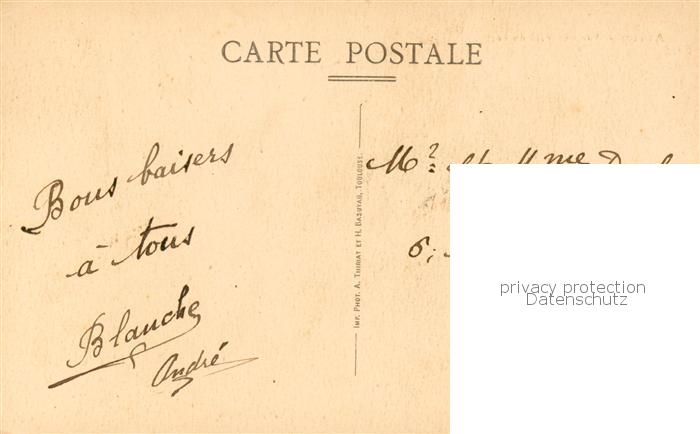 CARTE POSTALE
Bons baisers
à tous
Blanche
André
IMP. PHOT. A. THIRIAT ET H. BASUYAU, TOULOUSE.
Mr et Mme
6,
privacy protection
Datenschutz